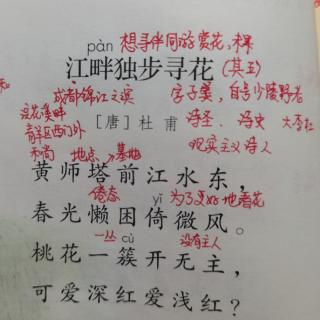 pàn 想寻伴同游赏花，未果
江畔独步寻花（其五）
成都锦江之滨 字子美，自号少陵野老
浣花溪畔
［唐］杜 甫 诗圣、诗史 大李杜
青羊区西门外
和尚 地点、墓地 现实主义诗人
黄师塔前江水东，
倦态 yǐ 为了更好地看花
春光懒困倚微风。
一丛 cù 没有主人
桃花一簇开无主，
可爱深红爱浅红？